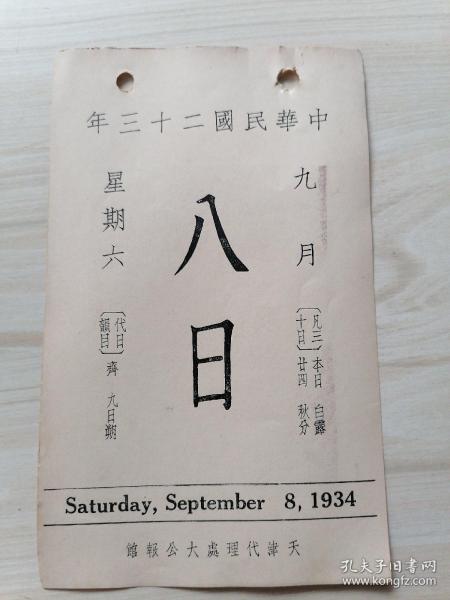 中華民國二十三年
九月
八日
星期六
〔凡三十日〕
本日 白露
廿四 秋分
〔代日韻目〕
齊 九日朔
Saturday, September 8, 1934
天津代理處大公報館
孔夫子旧书网
kongfz.com